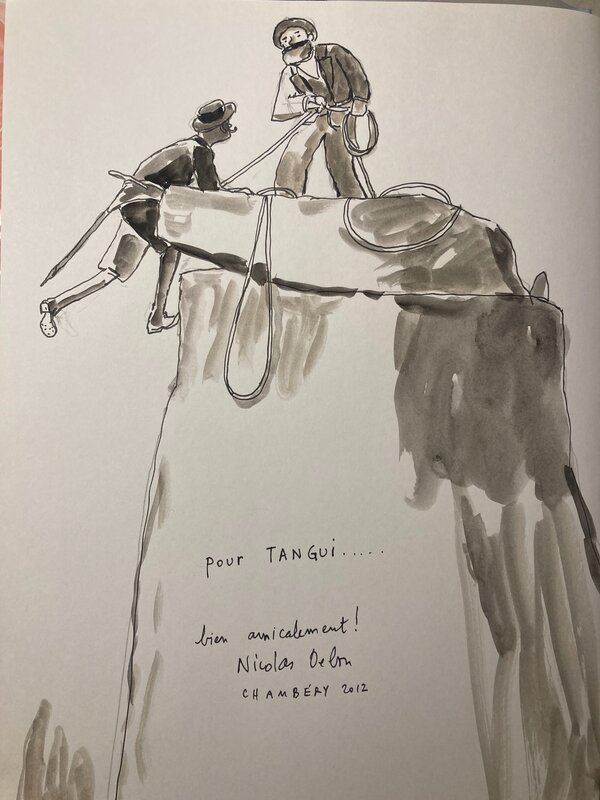 pour TANGUi.....
bien amicalement!
Nicolas Debon
CHAMBÉRY 2012